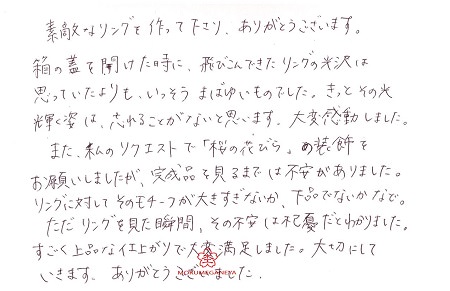 素敵なリングを作って下さり、ありがとうございます。
箱の蓋を開けた時に、飛びこんできたリングの光沢は
思っていたよりも、いっそうまばゆいものでした。きっとその光
輝く姿は、忘れることがないと思います。大変感動しました。
また、私のリクエストで「桜の花びら」の装飾を
お願いしましたが、完成品を見るまでは不安がありました。
リングに対してそのモチーフが大きすぎないか、下品でないかなど。
ただリングを見た瞬間、その不安は杞憂だとわかりました。
すごく上品な仕上がりで大変満足しました。大切にして
いきます。ありがとうございました.
MOKUMEGANEYA